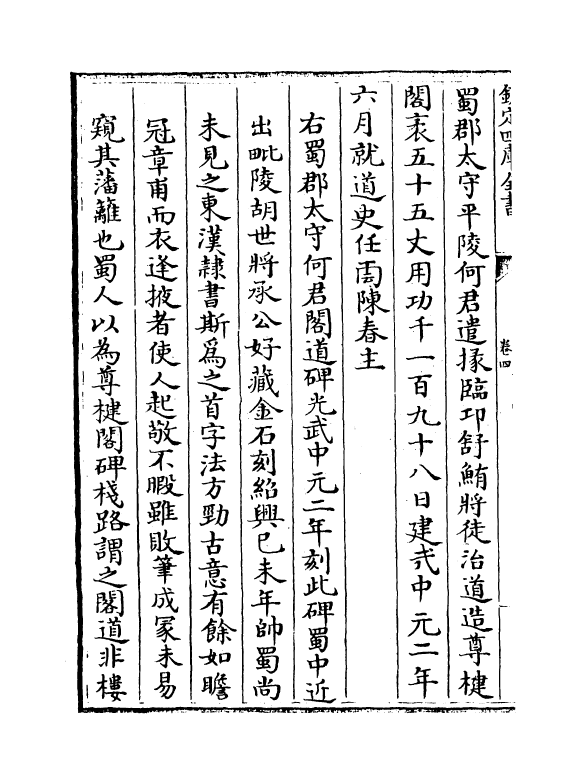 欽定四庫全書
卷四
蜀郡太守平陵何君遣掾臨邛舒鮪將徒治道造尊楗
閣袤五十五丈用功千一百九十八日建武中元二年
六月就道史任雲陳春主
右蜀郡太守何君閣道碑光武中元二年刻此碑蜀中近
出毗陵胡世將承公好藏金石刻紹興己未年帥蜀尚
未見之東漢隸書斯為之首字法方勁古意有餘如瞻
冠章甫而衣逢掖者使人起敬不暇雖敗筆成冢未易
窺其藩籬也蜀人以為尊楗閣碑棧路謂之閣道非樓